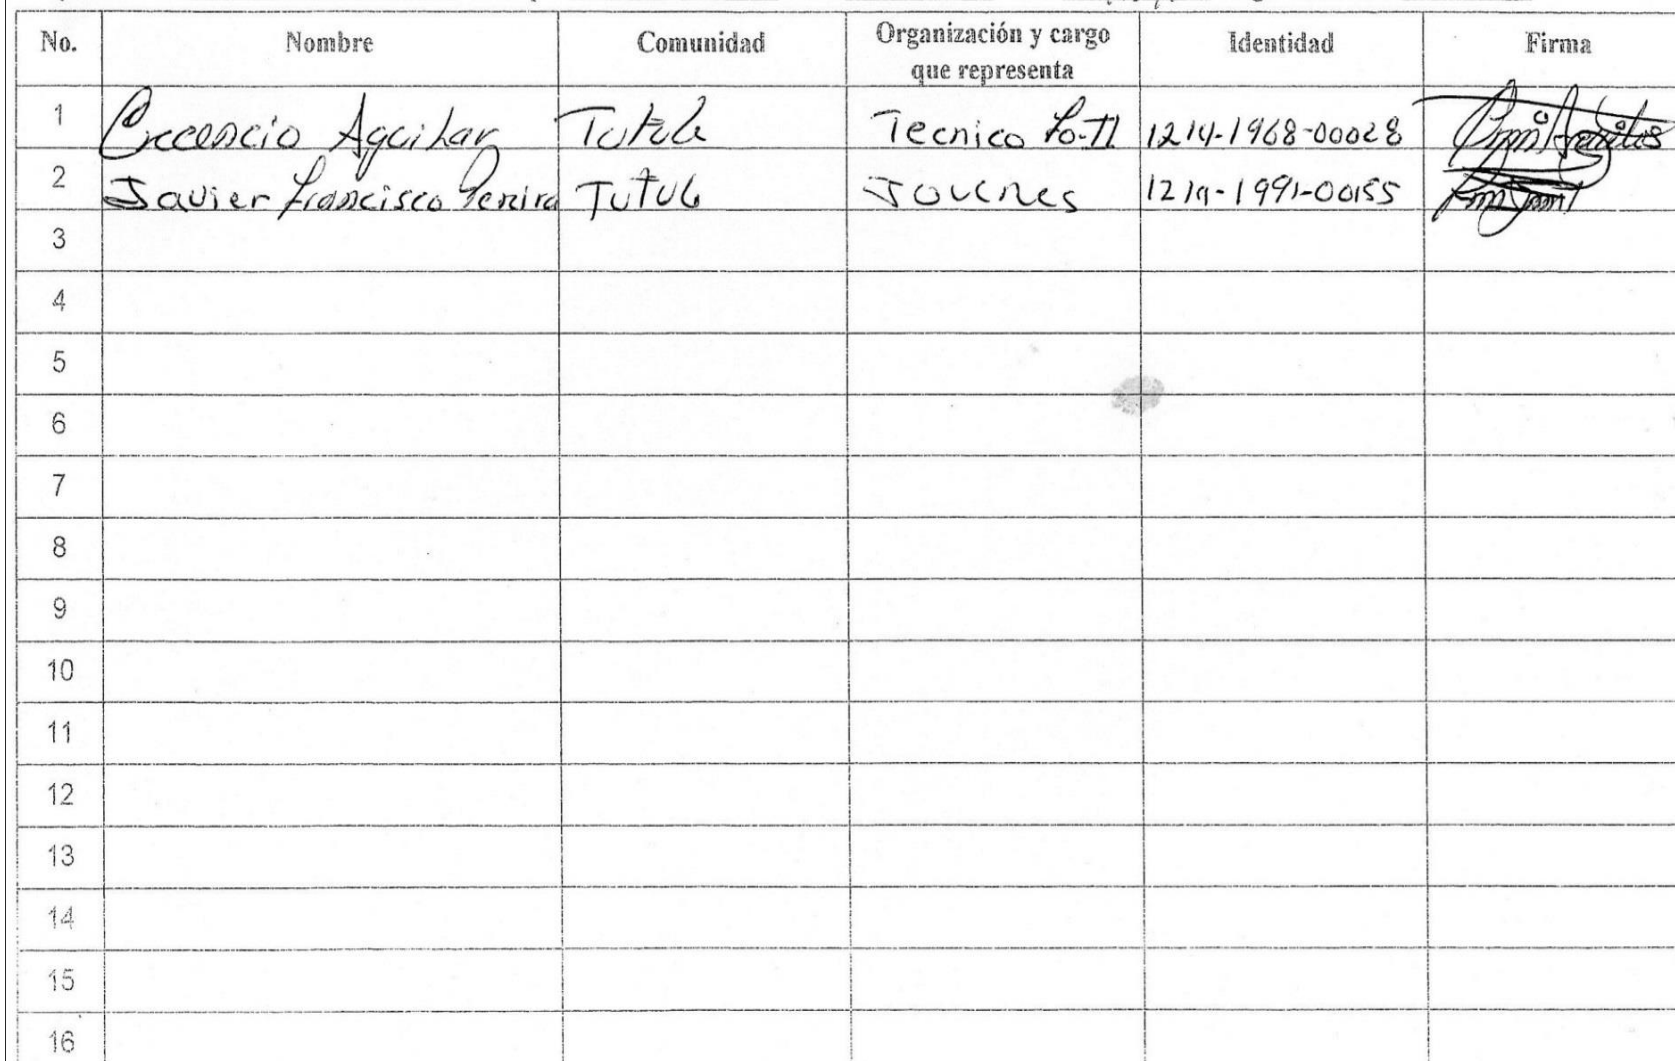 No. Nombre Comunidad Organización y cargo que representa Identidad Firma
1 Aguilar Tutule Tecnico 1214-1968-00028
2 Javier Francisco Tutule Jovenes 1219-1991-00155
3
4
5
6
7
8
9
10
11
12
13
14
15
16